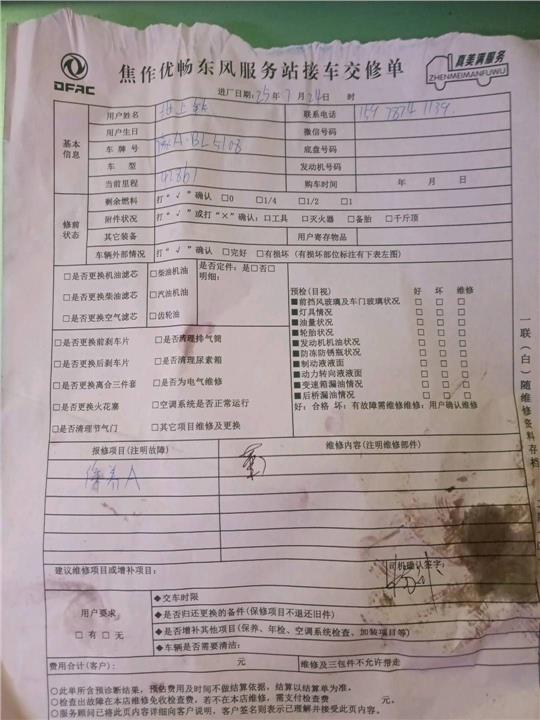 DFAC
焦作优畅东风服务站接车交修单
真美满服务
ZHENMEIMANFUWU
进厂日期: 25年7月24日 时
基本信息
用户姓名 联系电话
用户生日 微信号码
车牌号 豫A·BL5108 底盘号码
车型 发动机号码
当前里程 购车时间 年 月 日
修前状态
剩余燃料 打“√”确认 □0 □1/4 □1/2 □1
附件状况 打“√”或打“×”确认: □工具 □灭火器 □备胎 □千斤顶
其它装备 用户寄存物品
车辆外部情况 打“√”确认 □完好 □有损坏 (有损坏部位标注有下表左图)
□是否更换机油滤芯 □柴油机油 是否定件: 是□否□
明细:
□是否更换柴油滤芯 □汽油机油
□是否更换空气滤芯 □齿轮油
预检(目视) 好 坏 维修
■前挡风玻璃及车门玻璃状况 □ □ □
■灯具情况 □ □ □
■油量状况 □ □ □
■轮胎状况 □ □ □
■发动机机油状况 □ □ □
■防冻防锈瓶状况 □ □ □
■制动液液面 □ □ □
■动力转向液液面 □ □ □
■变速箱漏油情况 □ □ □
■后桥漏油情况 □ □ □
好: 合格 坏: 有故障需维修维修: 用户确认维修
□是否更换前刹车片 □是否清理排气筒
□是否更换后刹车片 □是否清理尿素箱
□是否更换离合三件套 □是否为电气维修
□是否更换火花塞 □空调系统是否正常运行
□是否清理节气门 □其它项目维修及更换
报修项目(注明故障) 维修内容(注明维修部件)
保养A
建议维修项目或增补项目:
司机确认签字:
用户要求
□有□无
◆交车时限
◆是否归还更换的备件(保修项目不退还旧件)
◆是否增补其他项目(保养、年检、空调系统检查、加装项目等)
◆车辆是否需要清洁:
费用合计(客户): 元 维修及三包件不允许带走
○此单所含预诊断结果, 预估费用及时间不做结算依据, 结算以结算单为准。
○检查出故障在本店维修免收检查费, 若不在本店维修, 需支付检查费 元。
○服务顾问已将此页内容详细向客户说明, 客户签名则表示已理解并接受此页内容。
一联(白)随维修资料存档